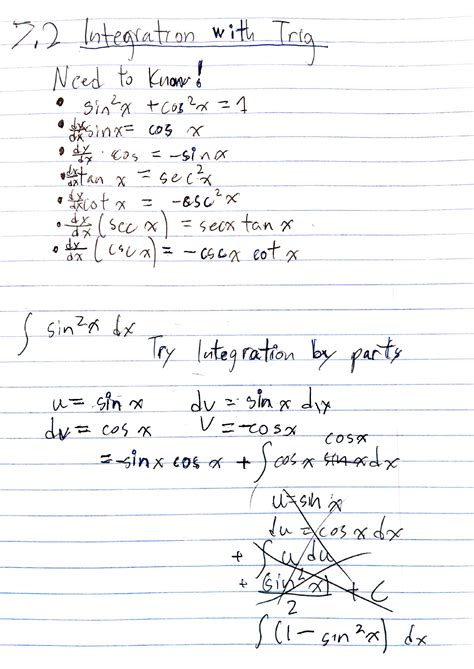 7.2 Integration with Trig
Need to Know!
• sin²x + cos²x = 1
• dx/dx sinx = cos x
• dy/dx · cos = -sinx
• dx/dx tan x = sec²x
• dx/dx cot x = -csc²x
• dy/dx (sec x) = secx tan x
• dx/dx (csc x) = -cscx cot x
∫ sin²x dx
Try Integration by parts
u = sin x dv = sin x dx
dv = cos x V = -cosx
cosx
= -sinx cos x + ∫ cos x sinx dx
u = sin x
du = cos x dx
+ ∫ u du
+ (sin²x)/2 + C
∫ (1 - sin²x) dx